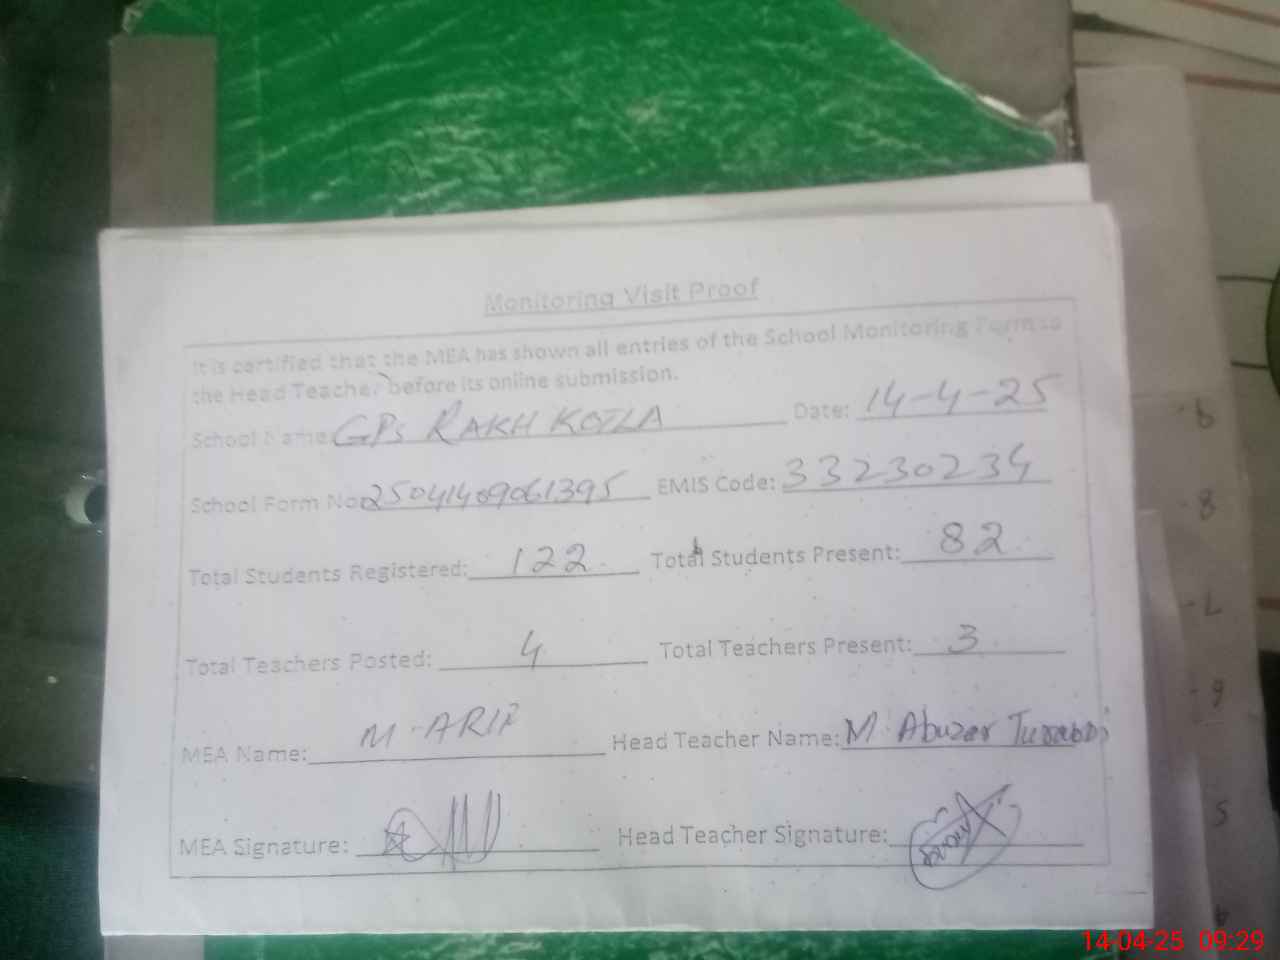 Monitoring Visit Proof
It is certified that the MEA has shown all entries of the School Monitoring Form to
the Head Teacher before its online submission.
School Name: GPs RAKH KOTLA Date: 14-4-25
School Form No 25041409061395 EMIS Code: 33230234
Total Students Registered: 122 Total Students Present: 82
Total Teachers Posted: 4 Total Teachers Present: 3
MEA Name: M-ARIF Head Teacher Name: M. Abuzar Turabbi
MEA Signature: Head Teacher Signature:
14-04-25 09:29